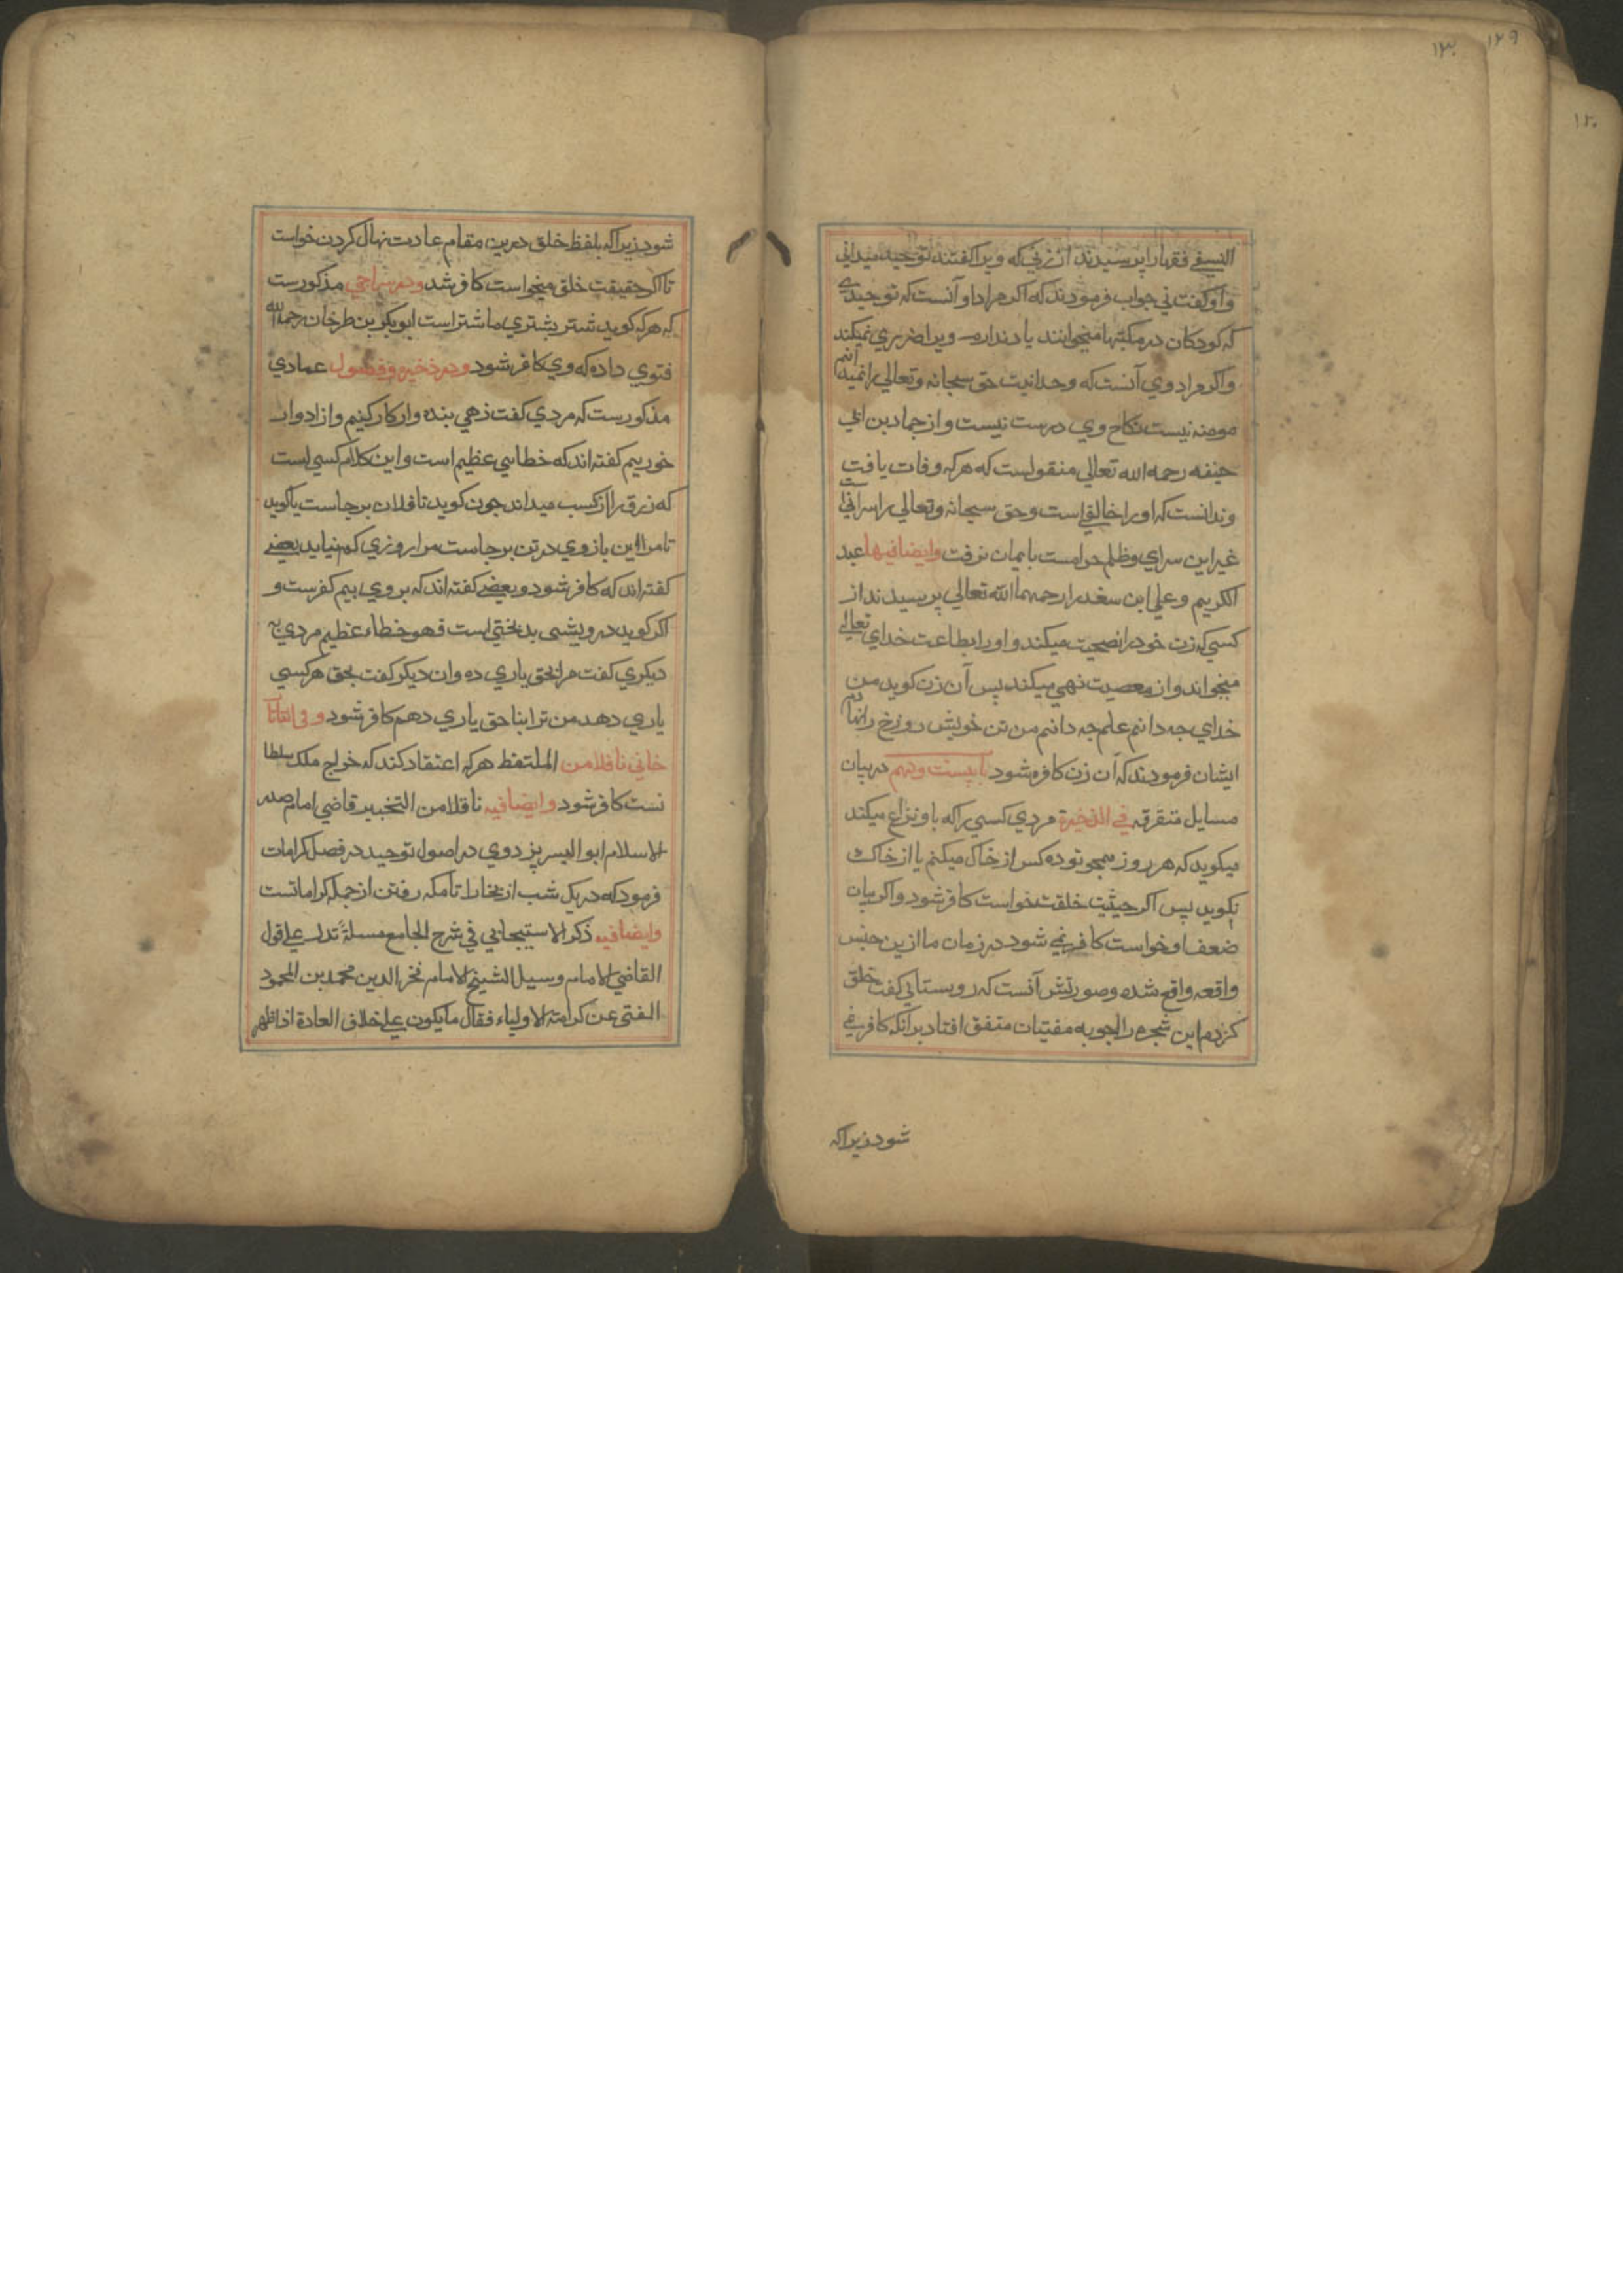 ۱۲۹
۱۳۰
۱۲۰
النسفی فقها را پرسیدند از زنی که ویرا کفتند توحید میدانی
و او کفت نی جواب فرمودند که اکر مراد او آنست که توحیدی
که کودکان در مکتبها میخوانند یاد ندارد ویرا ضرری نمیکند
و اکر مراد وی آنست که وحدانیت حق سبحانه و تعالی را نمیداند
مومنه نیست نکاح وی درست نیست و از حماد بن ابی
حنیفه رحمه الله تعالی منقولست که هر که وفات یافت
و ندانست که او را خالقی است و حق سبحانه و تعالی را سرائیست
غیر این سرای و ظلم حرامست با یمان نرفت وایضا فیها عبد
الکریم و علی ابن سغد را رحمهما الله تعالی پرسیدند از
کسی که زن خود را نصیحت میکند و او را بطاعت خدای تعالی
میخواند و از معصیت نهی میکند پس آن زن کوید من
خدای چه دانم علم چه دانم من تن خویش دوزخ را نهادم
ایشان فرمودند که آن زن کافره شود باب بیست و نهم در بیان
مسایل متفرقه فی الذخیرة مردی کسی را که باو نزاع میکند
میکوید که هر روز همچو تو ده کس از خاک میکنم یا از خاک
نکوید پس اکر حیثیت خلقت خواست کافر شود و اکر بیان
ضعف او خواست کافر نمی شود در زمان ما ازین جنس
واقعه واقع شده و صورتش آنست که روستائی کفت خلق
کردم این شجره را جوبه مفتیان متفق افتاد بر آنکه کافر نمی
شود زیرا که
شود زیرا که بلفظ خلق درین مقام عادت نهال کردن خواست
تا اکر حقیقت خلق میخواست کافر شد و در سراجی مذکورست
که هر که کوید شتر بشتری ما شتر است ابوبکر بن طرخان رحمه الله
فتوی داده که وی کافر شود و در ذخیره و فصول عمادی
مذکورست که مردی کفت زهی بنده وار کار کنیم و ازادوار
خوریم کفته اند که خطایی عظیم است و این کلام کسی است
که رزق را از کسب میداند چون کوید تا فلان بر جاست یا کوید
تا مرا این بازوی در تن بر جاست مرا روزی کم نیاید بعضی
کفته اند که کافر شود و بعضی کفته اند که بر وی بیم کفرست و
اکر کوید درویشی بدبختی است فهو خطاء عظیم مردی به
دیکری کفت مرا بحق یاری ده و ان دیکر کفت بحق هر کسی
یاری دهد من ترا بنا حق یاری دهم کافر شود و فی التاتار
خانی ناقلا من الملتقط هر که اعتقاد کند که خراج ملک سلطا
نست کافر شود وایضا فیه ناقلا من التخبیر قاضی امام صدر
الاسلام ابو الیسر بزدوی در اصول توحید در فصل کرامات
فرمود که در یک شب از بخارا تا مکه رفتن از جمله کراماتست
وایضا فیه ذکر الاستیجابی فی شرح الجامع مسئلة تدل علی قول
القاضی الامام وسیل الشیخ الامام فخر الدین محمد بن المحمود
المفتی عن کرامة الاولیاء فقال ما یکون علی خلاف العادة اذا ظهر